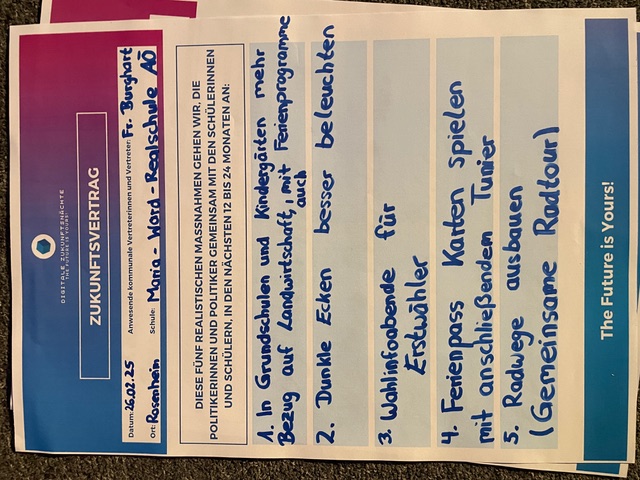 DIGITALE ZUKUNFTSNÄCHTE
THE FUTURE IS YOURS!
ZUKUNFTSVERTRAG
Datum: 26.02.25 Anwesende kommunale Vertreterinnen und Vertreter: Fr. Burghart
Ort: Rosenheim Schule: Maria-Ward-Realschule AÖ
DIESE FÜNF REALISTISCHEN MASSNAHMEN GEHEN WIR, DIE
POLITIKERINNEN UND POLITIKER GEMEINSAM MIT DEN SCHÜLERINNEN
UND SCHÜLERN, IN DEN NÄCHSTEN 12 BIS 24 MONATEN AN:
1. In Grundschulen und Kindergärten mehr
Bezug auf Landwirtschaft, mit Ferienprogramme
auch
2. Dunkle Ecken besser beleuchten
3. Wahlinfoabende für
Erstwähler
4. Ferienpass Karten spielen
mit anschließendem Tunier
5. Radwege ausbauen
(Gemeinsame Radtour)
The Future is Yours!